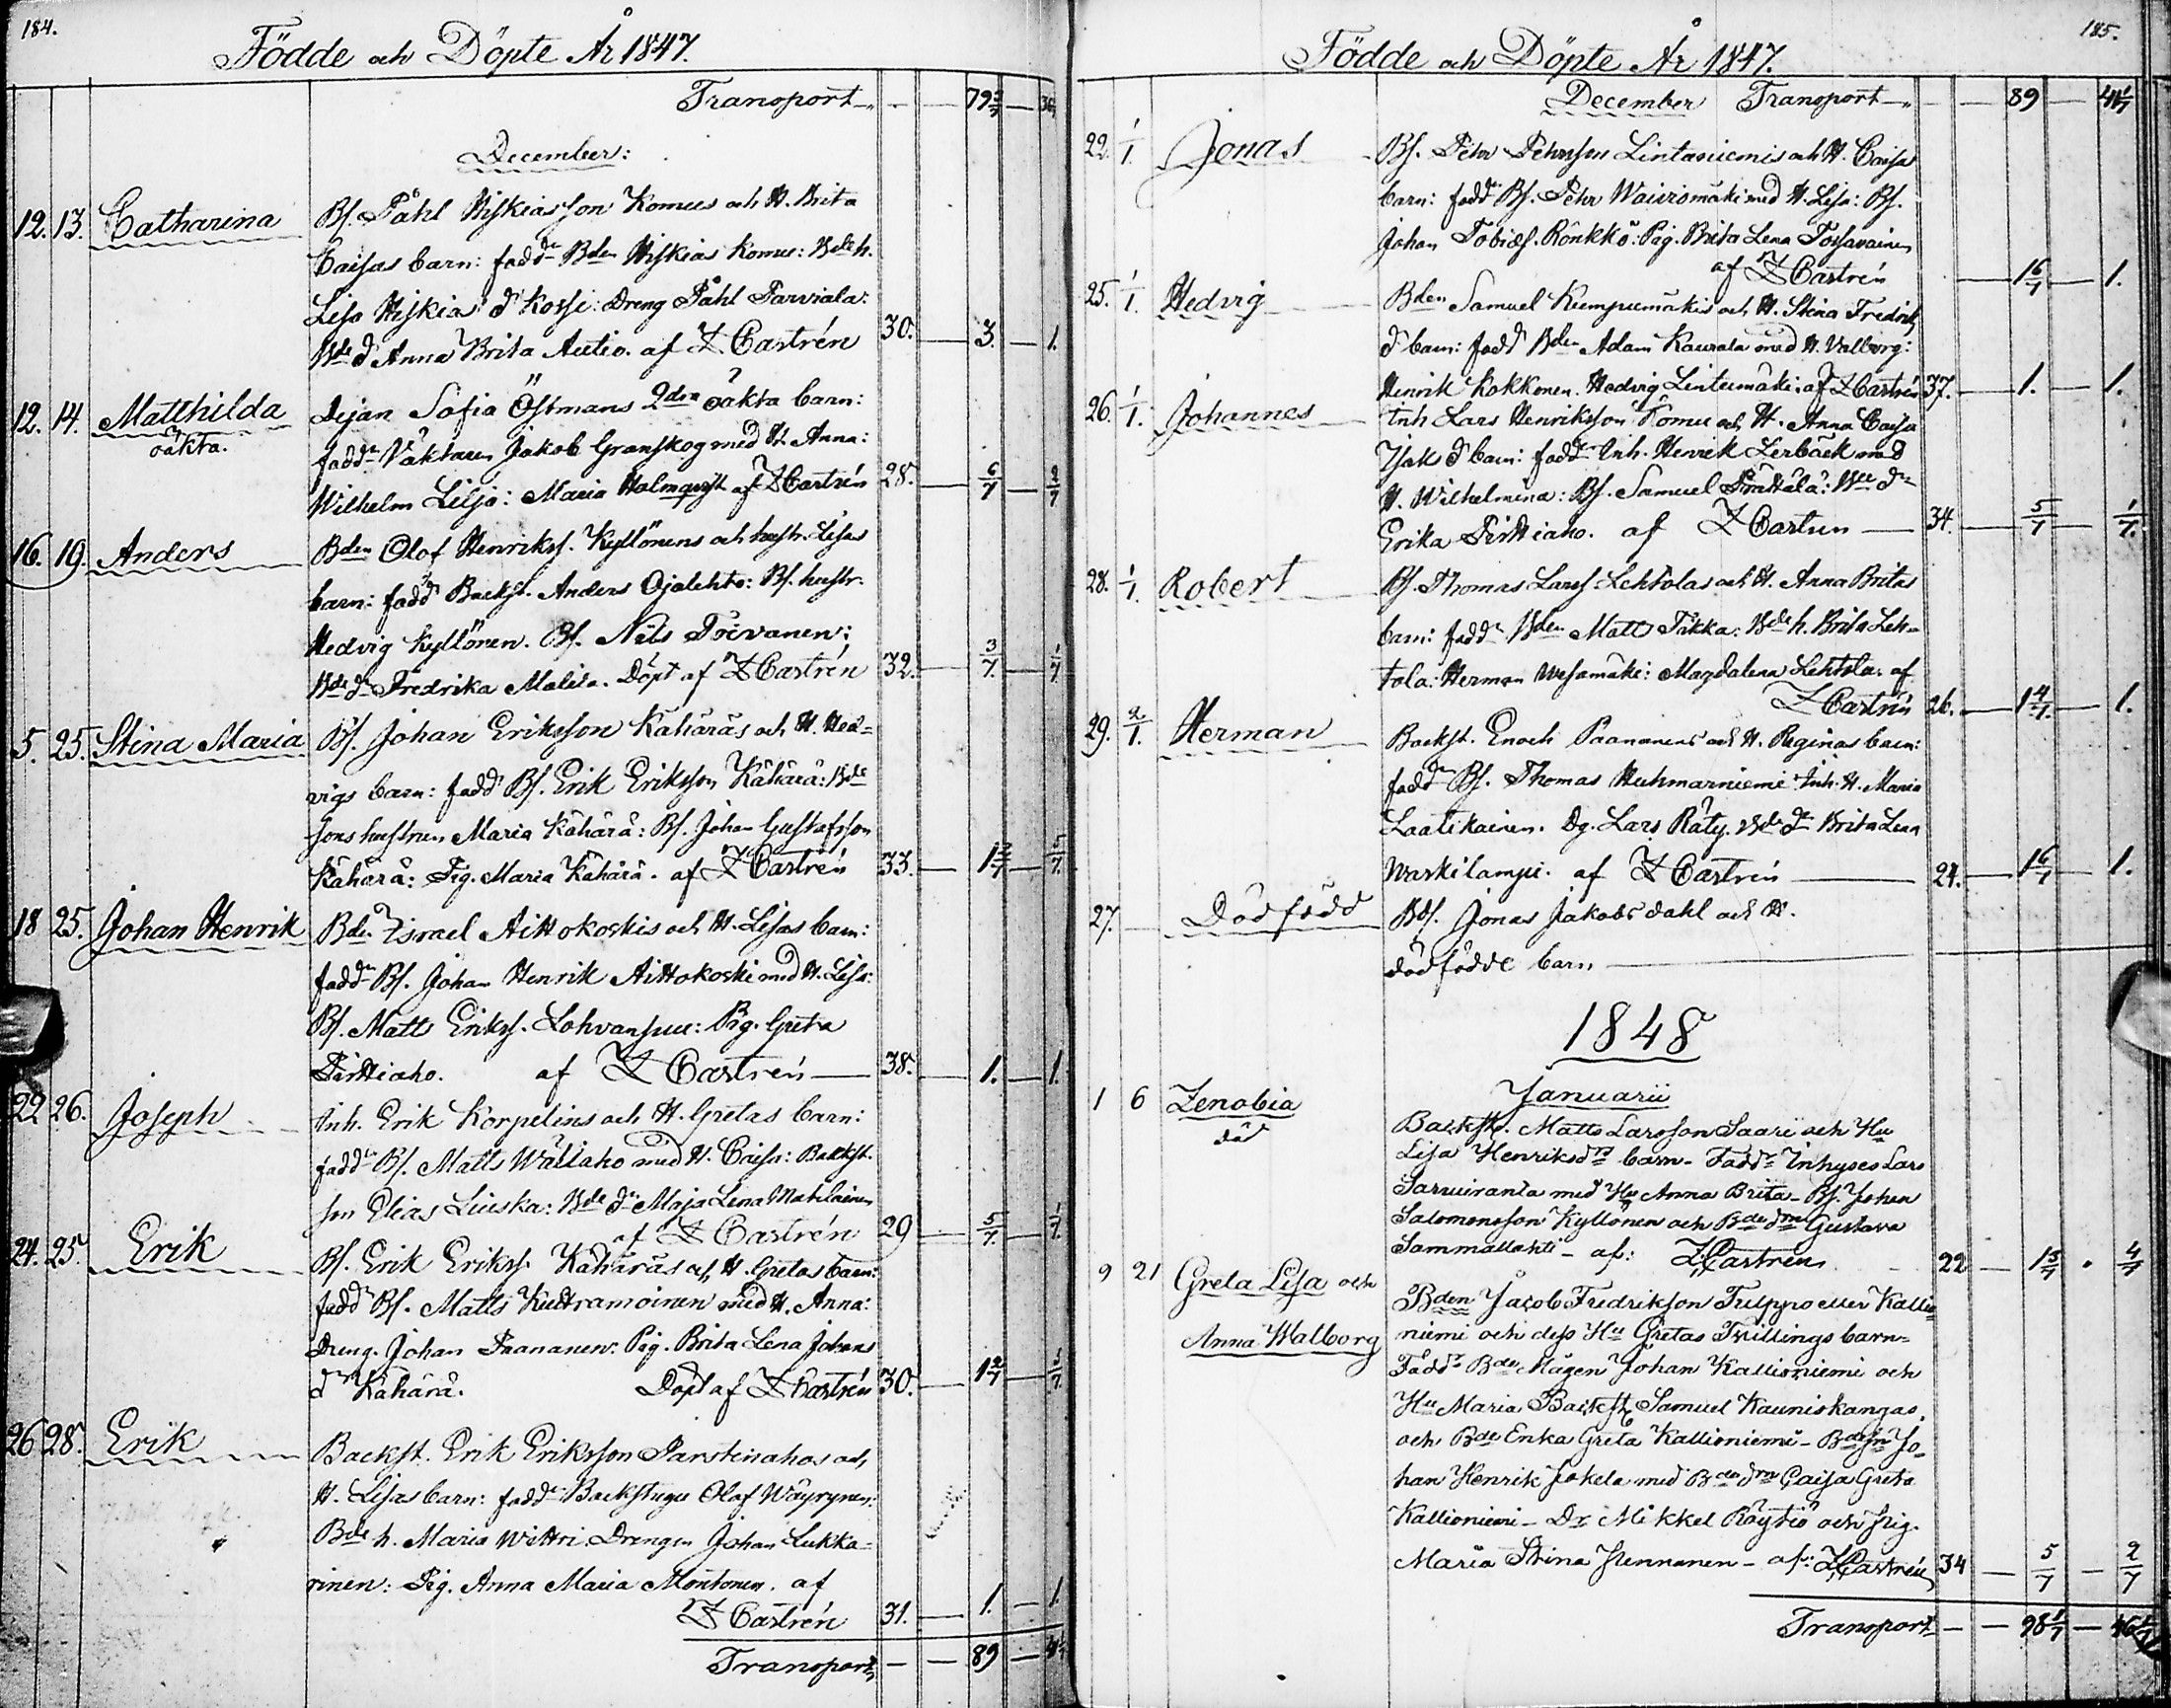 184.
Födde och Döpte År 1847.
Transport — 79 3/7
December:
12. 13. Catharina Bs. Påhl Hiskiasson Komus och H. Brita
Caisas barn: fadd. Bden Hiskias Komu: Bde h.
Lisa Hiskiæ d Kossi: Dreng Påhl Parviala:
Bde d Anna Brita Autio. af Z Castrén 30. — 3. — 1.
12. 14. Matthilda Dejan Sofia Östmans 2dra oäkta barn:
oäkta. fadd. Vaktaren Jakob Granskog med H. Anna:
Wilhelm Lilja: Maria Holmqvist af Z Castrén 28. 6/7 — 2/7
16. 19. Anders Bden Olof Henrikss. Kyllönens och hustr. Lisas
barn: fadd Backst. Anders Ojalehto: Bs. hustr.
Hedvig Kyllönen. Bs. Nils Toivanen:
Bde dr Fredrika Malila. Döpt af Z Castrén 32. 3/7 — 1/7
5. 25. Stina Maria Bs. Johan Eriksson Kähäräs och H. Hed=
vigs barn: fadd Bs. Erik Eriksson Kähärä: Bde
sons hustrun Maria Kähärä: Bs. Johan Gustafsson
Kähärä: Pig. Maria Kähärä. af Z Castrén 33. — 1 2/7 — 5/7
18 25. Johan Henrik Bden Israel Aittokoskis och H. Lisas barn:
fadd. Bs. Johan Henrik Aittokoski med H. Lisa:
Bs. Matts Erikss. Lohvansuu: Pig. Greta
Pirttiaho. af Z Castrén — 38. — 1. — 1.
22 26. Joseph Inh. Erik Korpelins och H. Gretas barn:
fadd. Bs. Matts Wäliaho med H. Caisa: Backst.
son Elias Liuska: Bde dr Maja Lena Matilainen
af Z Castrén 29 — 5/7 — 1/7
24. 25. Erik Bs. Erik Erikss. Kähäräs och H. Gretas barn:
fadd Bs. Matts Kuttramoinen med H. Anna:
Dreng. Johan Paananen: Pig. Brita Lena Johans
dr Kähärä. Döpt af Z Castrén 30. — 1 2/7
26 28. Erik Backst. Erik Eriksson Parstinahos och
H. Lisas barn: fadd. Backstugu Olof Wäyrynen:
Bde h. Maria Wittri: Drengen Johan Lukka=
rinen: Pig. Anna Maria Möntönen. af
Z Castrén 31. — 1. — 1.
Transport — — 89 — 41
185.
Födde och Döpte År 1847.
December Transport — — 89 — 41 1/7
22. 1/1. Jonas Bs. Pehr Pehrsson Lintaniemis och H. Caisa
barn: fadd. Bs. Pehr Wairomäki med H. Lisa: Bs.
Johan Tobiæs. Rönkkö: Pig. Brita Lena Tossavainen
af Z Castrén — 1 6/7 — 1.
25. 1/1. Hedvig Bden Samuel Kumpumäkis och H. Stina Fredrik
d barn: fadd Bden Adam Kaurala med H. Valborg:
Henrik Kokkonen. Hedvig Lintumäki. af Z Castrén 37. — 1. — 1.
26. 1/1. Johannes Inh Lars Henriksson Komu och H. Anna Caisa
Isak d barn: fadd Inh. Henrik Lerbäck med
H. Wilhelmina: Bs. Samuel Pirttälä: Bde dr
Erika Pirttiaho. af Z Castrén — 34. — 5/7 — 1/7.
28. 1/1. Robert Bs. Thomas Larss Lehtolas och H. Anna Britas
barn: fadd Bden Matts Takka: Bde h. Brita Leh=
tola: Herman Wesamäki: Magdalena Lehtola. af
Z Castrén 26. — 1 4/7. — 1.
29. 2/1. Herman Backst. Enoch Paananens och H. Reginas barn:
fadd Bs. Thomas Huhmarniemi Inh. H. Maria
Laatikainen. Dg. Lars Räty. Bde dr Brita Lena
Waskilampi. af Z Castrén — 24. — 1 6/7 — 1.
27. Dödfödd Bds. Jonas Jakobs dahl och H.
dödfödde barn —
1848
Januarii
1 6 Zenobia Backst. Matts Larsson Saari och Hu
död Lisa Henriksdr barn - Fadd. Inhyses Lars
Sarviranta med Hu Anna Brita - Bs. Johan
Salomonsson Kyllönen och Bde dm Gustava
Sammallahti - af: Z Castrén 22 — 1 5/7 . 4/7
9 21 Greta Lisa och Bden Jacob Fredrikson Fulppo eller Kallio
Anna Walborg niemi och dess Hu Gretas Tvillings barn=
Fadd. Bde Mågen Johan Kallioniemi och
Hu Maria Backst. Samuel Kauniskangas,
och Bde Enka Greta Kallioniemi - Bde sn Jo=
han Henrik Jokela med Bde dm Caisa Greta
Kallioniemi - Dr. Mikkel Räytiö och Pig.
Maria Stina Hennanen - af: Z Castrén 34 — 5/7 - 2/7
Transport — — 98 1/7 — 46